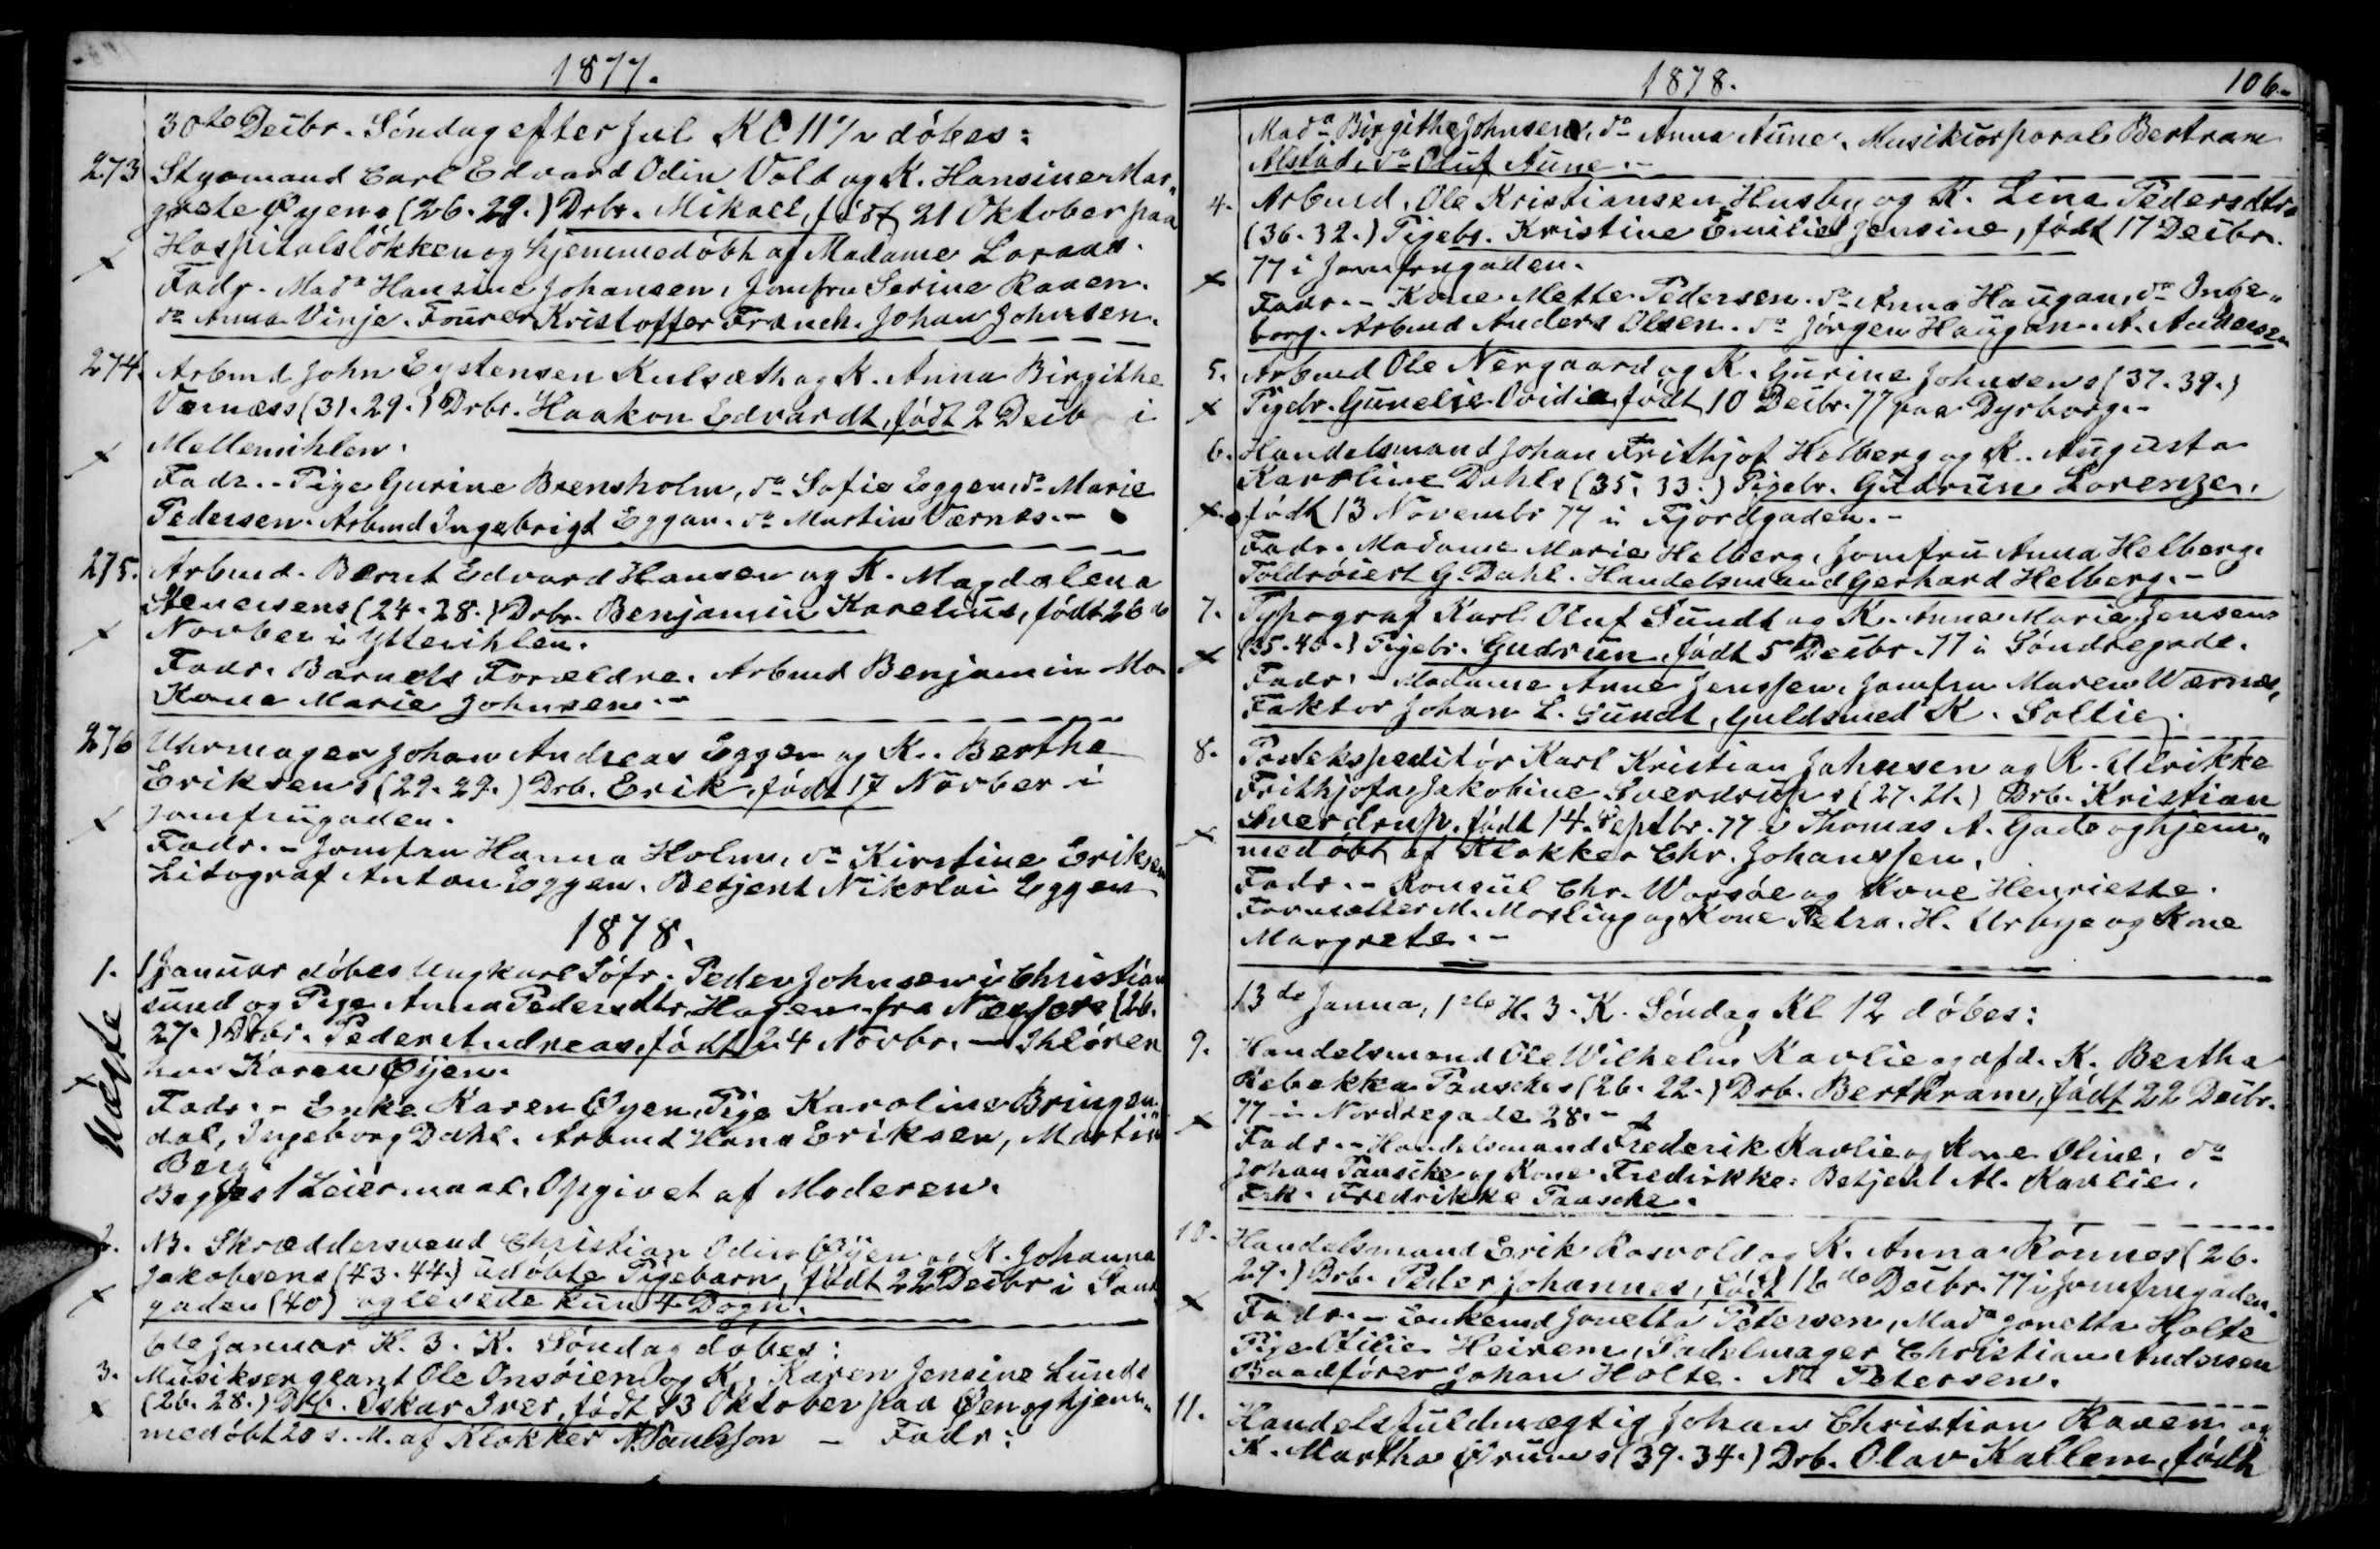 1877.
30te Decbr. Söndag efter Jul Kl 11½ döbes:
273 Styrmand Carl Edvard Odin Vold og K. Hansine Mar„
grete Øyens (26. 29.) Drbr. Mikael, födt 21 Oktober paa
Hospitalslökken og hjemmedöbt af Madame Loraas.
Fadr. Mada Hansine Johansen, Jomfru Serine Raaen.
do Anna Vinje. Fourer Kristoffer Franch. Johan Johnsen.
274. Arbmd John Eystensen Kulsæth og K. Anna Birgithe
Værnæss (31. 29.) Drbr. Haakon Edvardt, födt 2 Decb i
Mellemihlen.
Fadr. - Pige Gurine Brensholm, do Sofie Eggen, do Marie
Pedersen. Arbmd Ingebrigt Eggan. do Martin Værnes. -
275. Arbmd. Bernt Edvard Hansen og K. Magdalena
Stenersens (24. 28.) Drbr. Benjamin Karelius, födt 26de
Novber i Ytterihlen.
Fadr. Barnets Forældre. Arbmd Benjamin Mo
Kone Marie Johnsen. -
276 Uhrmager Johan Andreas Eggen og K. Berthe
Eriksens (29. 29.) Drb. Erik, födt 17 Novber i
Jomfrugaden.
Fadr. - Jomfru Hanna Holm, do Kirstine Eriksen
Litograf Anton Eggen. Betjent Nikolai Eggen
1878.
1. 1 Januar döbes Ungkarl Söfr. Peder Johnsen i Christian
sund og Pige Anna Pedersdtr Hagen fra (26.
27.) Drbr. Peder Andreas, födt 24 Novbr. - Ihlören
hos Karen Øyen.
Uægte
Fadr. - Enke Karen Øyen, Pige Karoline Bringen„
dal, Ingeborg Dahl. Arbmd Hans Eriksen, Martin
Berg.
Begges 1 Leiermaal. Opgivet af Moderen.
2. NB. Skræddersvend Christian Odin Øyen og K. Johanna
Jakobsens (43. 44.) udöbte Pigebarn, födt 22 Decbr i Sand
gaden (40) og levede kun 4 Dogn.
6te Januar H. 3. K. Söndag döbes:
3. Musiksergeant Ole Onsöien og K. Karen Jensine Lunds
(26. 28.) Drb. Oskar Iver, födt 13 Oktober paa Øen og hjem„
medöbt 20 s. M. af Klokker Paulsson - Fadr:
1878.
106.
Mada Birgithe Johnsen, do Anna Aune. Musikkorporal Bertram
Alstad, do Oluf Aune. -
4. Arbmd. Ole Kristiansen Husby og K. Lina Pedersdtrs
(36. 32.) Pigebr. Kristine Emilie Jensine, födt 17 Decbr.
77 i Jomfrugaden.
Fadr. - Kone Mette Pedersen. do Anna Haugan, do Inge„
borg. Arbmd Anders Olsen. do Jörgen Haugan. A. Andersen
5. Arbmd Ole Nergaard og K. Gurine Johnsens (37. 39.)
Pigebr. Gunelie Ovidia, födt 10 Decbr. 77 paa Dyrborg. -
6. Handelsmand Johan Frithjof Helberg og K. Augusta
Karoline Dahls (35. 33.) Pigebr. Gudrun Lorenze,
födt 13 Novembr 77 i Fjordgaden. -
Fadr. Madame Marie Helberg, Jomfru Anna Helberg.
Toldröiert G. Dahl. Handelsmand Gerhard Helberg. -
7. Typograf Karl Oluf Sundt og K. Anne Marie Jensens
(35. 40.) Pigebr. Gudrun, födt 5 Decbr. 77 i Söndregade.
Fadr. - Madame Anne Jenssen. Jomfru Maren Wærnes,
Faktor Johan L. Sundt, Guldsmed K. Soltie.
8. Postekspeditör Karl Kristian Johnsen og K. Ulrikke
Frithjofa Jakobine Sverdrups (27. 21.) Drb. Kristian
Sverdrup, födt 14. Septbr. 77 i Thomas A. Gade og hjem„
medöbt af Klokker Chr. Johanssen.
Fadr. - Konsul Chr. Worsöe og Kone Henriette.
Forvalter M. Mosling og Kone Petra. H. Urbye og Kone
Margrete. -
13de Janua, 1ste H. 3. K. Söndag Kl 12 döbes:
9. Handelsmand Ole Wilhelm Kavlie og afd. K. Bertha
Rebekka Paasches (26. 22.) Drb. Berthram, födt 22 Decbr.
77 i Nordregade 28. -
Fadr. - Handelsmand Frederik Kavlie og Kone Oline, do
Johan Paasche og Kone Fredrikke. Betjent Al. Kavlie.
Frk. Fredrikke Paasche.
10. Handelsmand Erik Rosvold og K. Anna Rönnes (26.
29.) Drb. Peter Johannes, födt 16de Decbr. 77 i Jomfrugaden.
Fadr. - Enkemd Jonetta Petersen, Mada Jonetta Holte
Pige Otilie Heirem, Sadelmager Christian Andersen
Baadförer Johan Holte. N. Petersen.
11. Handelsfuldmægtig Johan Christian Raaen og
K. Martha Ørums (39. 34.) Drb. Olav Kallem, födt